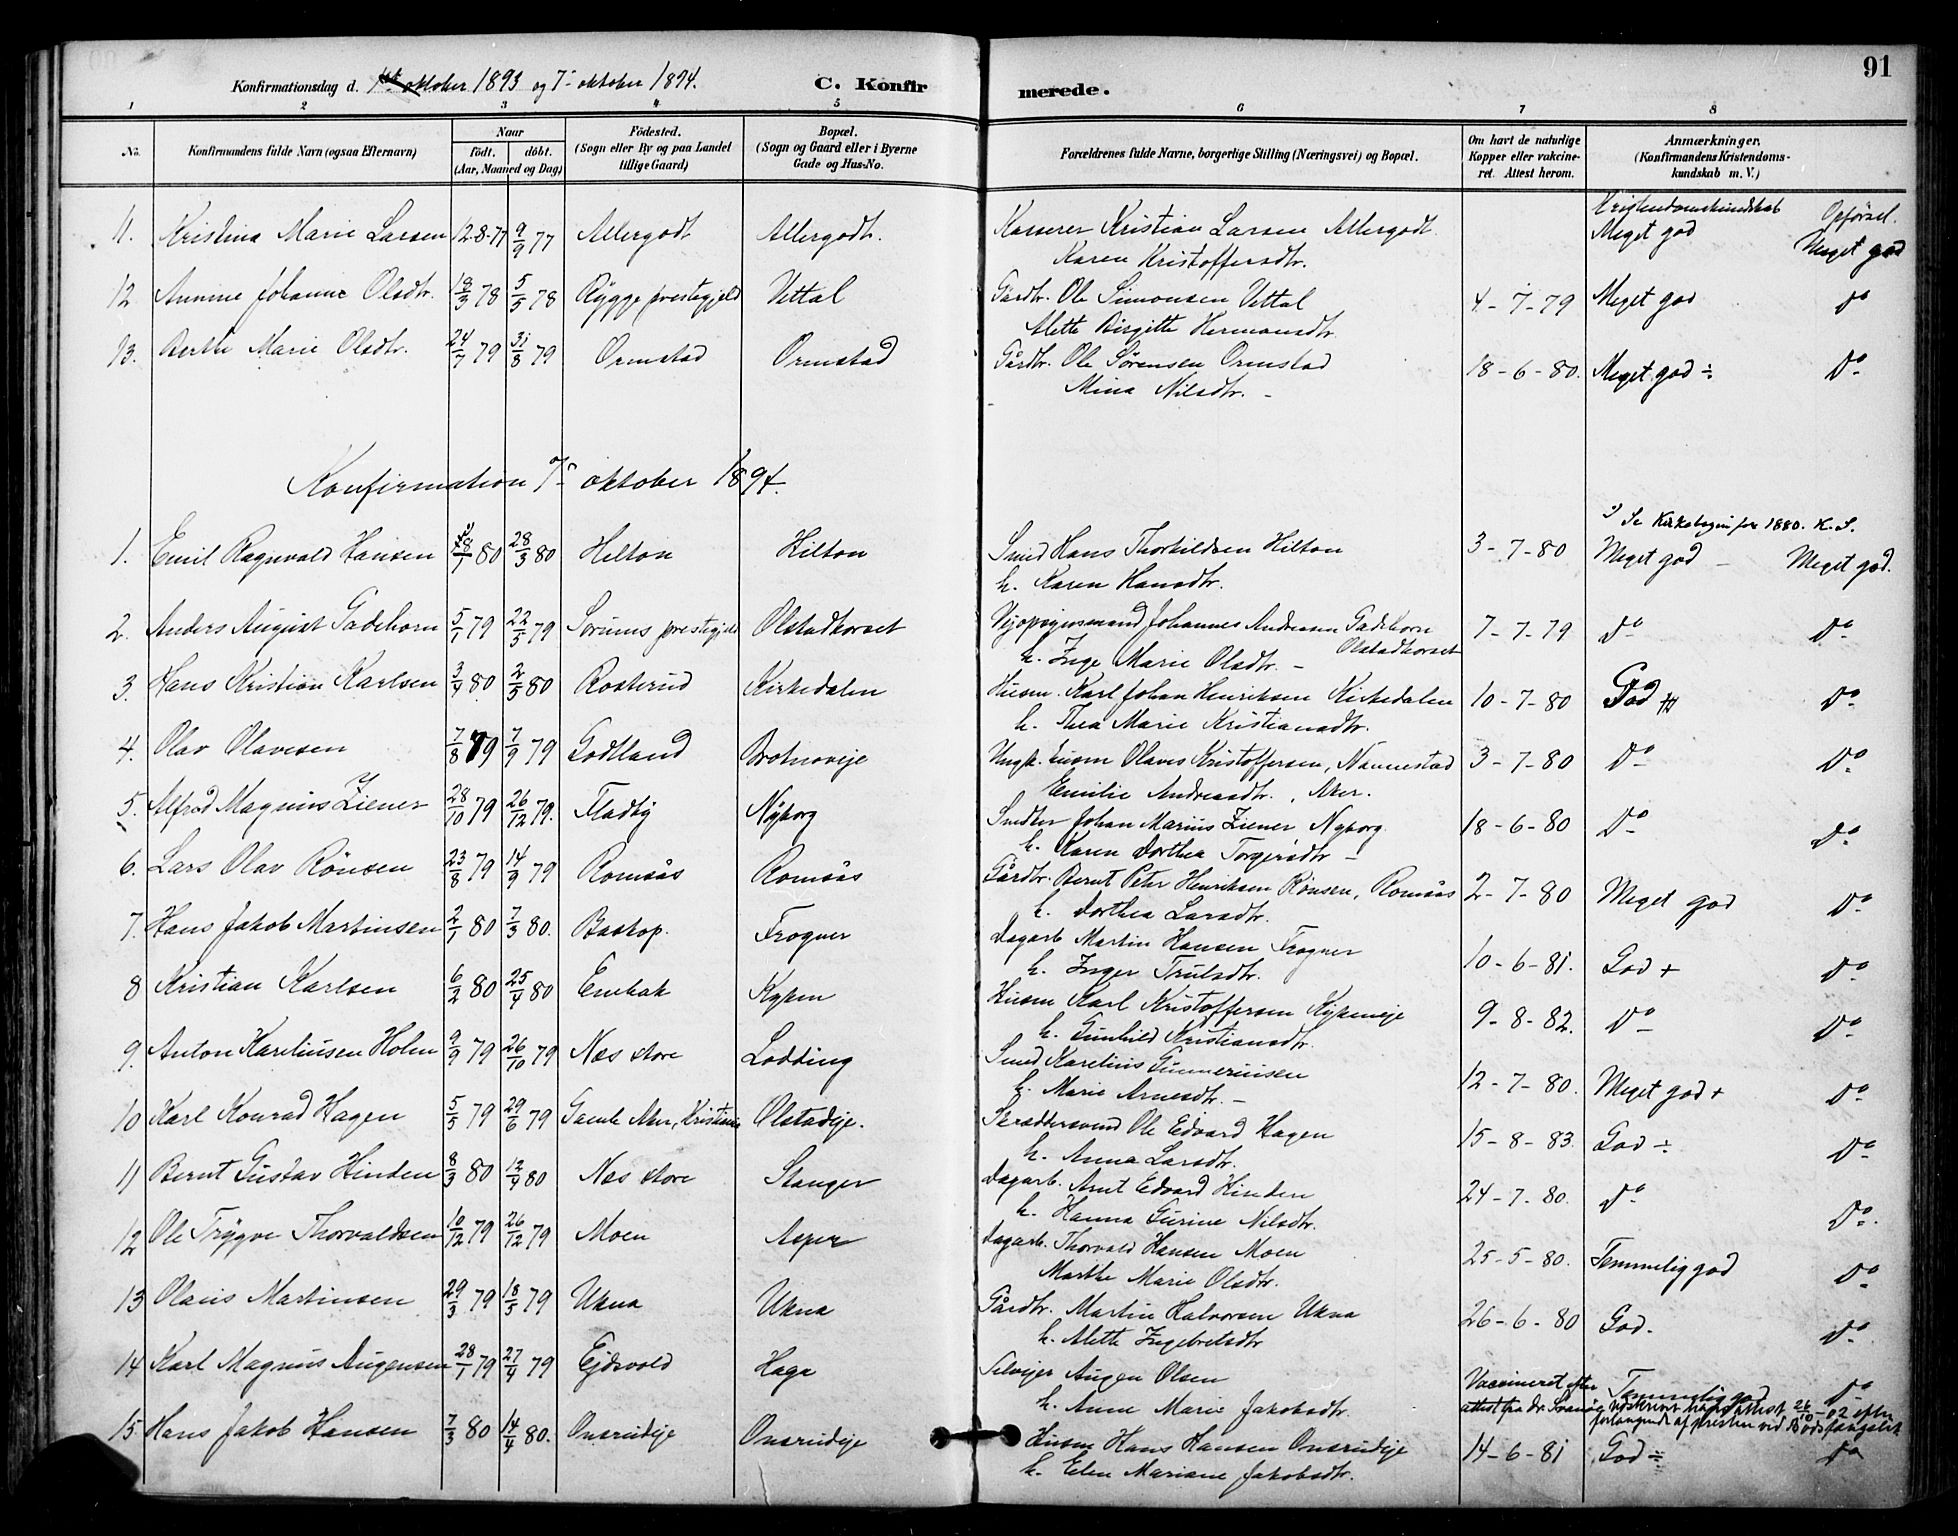 91
Konfirmationsdag d. 1ste oktober 1893 og 7de oktober 1894.
C. Konfirmerede.
1 2 3 4 5 6 7 8
No.
Konfirmandens fulde Navn (ogsaa Efternavn)
Naar
født. døbt.
(Aar, Maaned og Dag)
Fødested.
(Sogn eller By og paa Landet
tillige Gaard)
Bopæl.
(Sogn og Gaard eller i Byerne
Gade og Hus-No.
Forældrenes fulde Navne, borgerlige Stilling (Næringsvei) og Bopæl.
Om havt de naturlige
Kopper eller vakcine-
ret. Attest herom.
Anmærkninger.
(Konfirmandens Kristendoms-
kundskab m. V.)
Kristendomskundskab Opførsel.
11. Kristina Marie Larsen 12-8-77 9/9 77 Allergodt Allergodt. Kasserer Kristian Larsen Allergodt Meget god Meget god
Karen Kristoffersdtr.
12 Annine Johanne Olsdtr. 18/3 78 5/5 78 Rygge prestegjeld Vettal Gårdbr. Ole Simonsen Vettal 4-7-79 Meget god Do
Alette Birgitte Hermansdtr.
13. Berthe Marie Olsdtr. 24/7 79 31/8 79 Ormstad Ormstad Gårdbr. Ole Sørensen Ormstad 18-6-80. Meget god ÷ Do
Mina Nilsdtr. -
Konfirmation 7de oktober 1894.
Se Kirkebogen for 1880. K. S.
1. Emil Ragnvald Hansen 80 28/3 80 Hilton Hilton Smed Hans Thorkildsen Hilton 3-7-80 Meget god - Meget god.
h. Karen Hansdtr.
2. Anders August Gadehorn 5/1 79 22/5 79 Sørums prestegjeld Olstadkorset Johannes Andersen Gadehorn 7-7-79 Do Do
Olstadkorset
h. Inge Marie Olsdtr. -
3. Hans Kristian Karlsen 3/4 80 2/5 80 Rosterud Kirkedalen Husm. Karl Johan Henriksen Kirkedalen 10-7-80 God Do
h. Thea Marie Kristiansdtr.
4. Olav Olavesen 7/8 79 7/9 79 Godtland Brotnoveje Ungk. Olaves Kristoffersen, Nannestad 3-7-80 Do Do
Emilie Andreasdtr., Aker.
5. Alfred Magnus Ziener 28/10 79 26/12 79. Fladby Nyborg Johan Marius Ziener Nyborg. 18-6-80 Do Do
h. Karen Dorthea Torgersdtr -
6. Lars Olav Rønsen 23/8 79 14/9 79 Romsås Romsås Gårdbr. Bernt Peter Henriksen Rønsen, Romsås 2-7-80 Meget god Do
h. Dorthea Larsdtr.
7. Hans Jakob Martinsen 2/1 80 7/3 80. Baskop. Frogner Dagarb. Martin Hansen Frogner 10-6-81. God + Do
h. Inger Trulsdtr.
8 Kristian Karlsen 6/2 80 25/4 80 Embak Kyken Husm Karl Kristoffersen Kykeneje 9-8-82. Do Do
h. Gunhild Kristiansdtr.
9. Anton Kareliusen Holm 9/9 79 26/10 79 Nas store Lodding Smed Karelius Gunneriusen 12-7-80. Meget god + Do
h. Marie Arnesdtr. -
10 Karl Konrad Hagen 5/5 79 29/6 79 Gamle Aker, Kristiania Olstadeje. Skræddersvend Ole Edvard Hagen 15-8-83. God ÷ Do
h. Anna Larsdtr.
11 Bernt Gustav Hinden 8/3 80 12/4 80 Nas store Stanger Dagarb. Amt Edvard Hinden 24-7-80. Do Do
h. Hanna Gurine Nilsdtr.
12 Ole Trygve Thorvaldsen 10/12 79 26/12 79 Moen Asper Dagarb. Thorvald Hansen Moen 25-5-80. Temmelig god Do
Marthe Marie Olsdtr.
13 Olaus Martinsen 29/3 79 18/5 79 Ukna Ukna Gårdbr. Martin Halvorsen Ukna 26-6-80 God. Do
h. Alette Ingebretsdtr
14 Karl Magnus Augensen 28/1 79 27/4 79 Ejdsvold Haga Selvejer Augen Olsen Vaccineret efter Temmelig god Do
h. Anne Marie Jakobsdtr. attest fra dr. attest 26/10-02 efter
forlangende af presten ved Bodsfængslet
15. Hans Jakob Hansen 7/3 80 14/4 80. Onsrudeje Onsrudeje Husm Hans Hansen Onsrudeje 14-6-81 God ÷ Do
h. Elen Mariane Jakobsdtr.